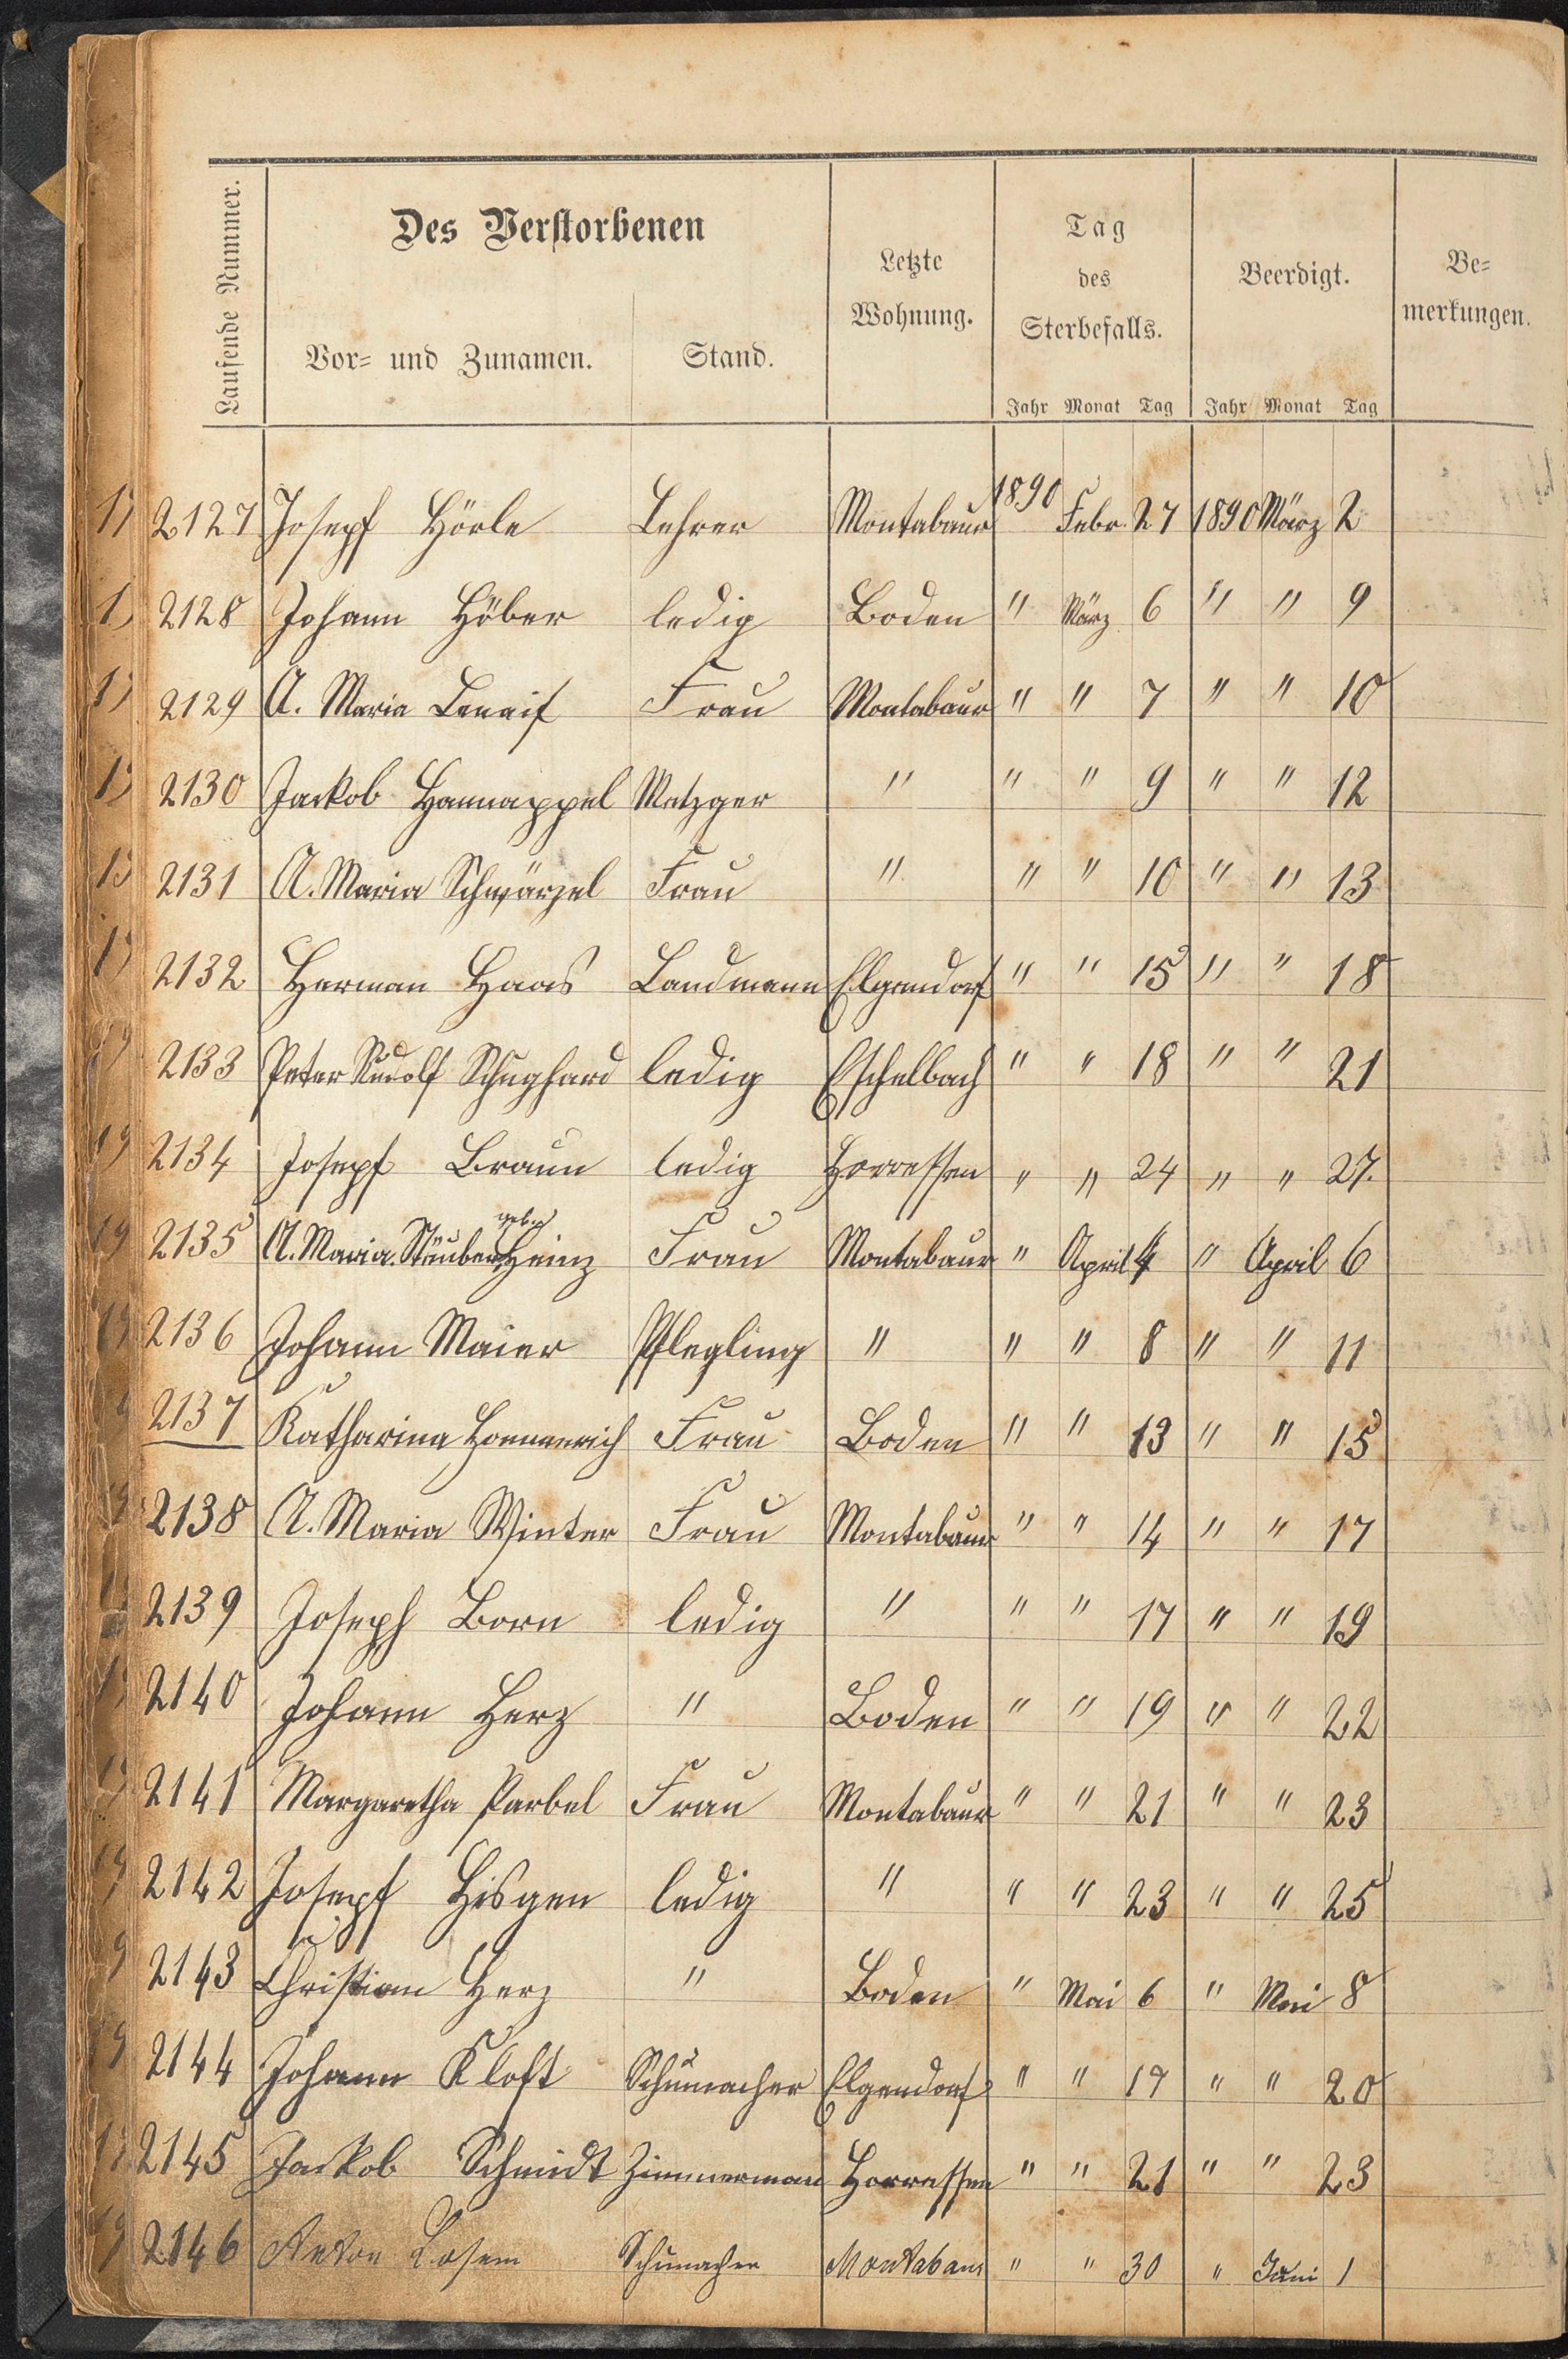 Laufende Nummer.
Des Verstorbenen
Vor- und Zunamen. Stand.
Letzte
Wohnung.
Tag
des
Sterbefalls.
Beerdigt.
Be-
merkungen.
Jahr Monat Tag Jahr Monat Tag
2127 Josepf Hörle Lehrer Montabaur 1890 Febr. 27 1890 März 2
2128 Johann Höber ledig Boden " März 6 " " 9
2129 A. Maria Frau Montabaur " " 7 " " 10
2130 Jackob Hannappel Metzger " " " 9 " " 12
2131 A. Maria Schwärzel Frau " " " 10 " " 13
2132 Herman Haas Landmann Elgendorf " " 15 " " 18
2133 Peter Rudolf Schughard ledig Eschelbach " " 18 " " 21
2134 Josepf Braun ledig Horressen " " 24 " " 27.
2135 A. Maria Stäuber geb. Heinz Frau Montabaur " April 4 " April 6
2136 Johann Maier Pflegling " " " 8 " " 11
2137 Katharina Hommerich Frau Boden " " 13 " " 15
2138 A. Maria Winter Frau Montabaur " " 14 " " 17
2139 Joseph Born ledig " " " 17 " " 19
2140 Johann Herz " Boden " " 19 " " 22
2141 Margaretha Parbel Frau Montabaur " " 21 " " 23
2142 Josepf Hisgen ledig " " " 23 " " 25
2143 Christian Herz " Boden " Mai 6 " Mai 8
2144 Johann Kloft Schumacher Elgendorf " " " " 20
2145 Jackob Schmidt Zimmerman Horressen " " 21 " " 23
2146 Anton Losem Schumacher Montabaur " " 30 " Juni 1